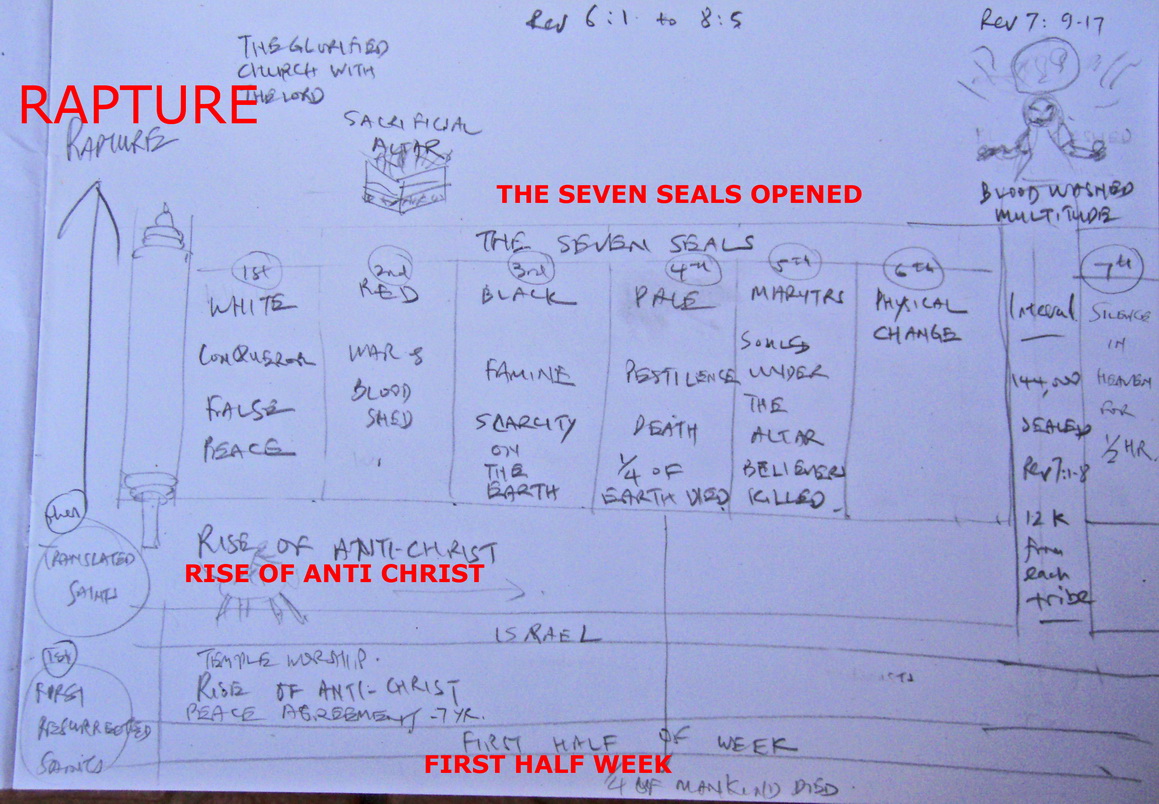 Rev 6:1. to 8:5
Rev 7: 9-17
THE GLORIFIED
CHURCH WITH
THE LORD
RAPTURE
RAPTURE
SACRIFICIAL
ALTAR
THE SEVEN SEALS OPENED
BLOOD WASHED
MULTITUDE
THE SEVEN SEALS
1st
WHITE
CONQUEROR
FALSE
PEACE
2nd
RED
WAR &
BLOOD
SHED
3rd
BLACK
FAMINE
SCARCITY
ON
THE
EARTH
4th
PALE
PESTILENCE
DEATH
1/4 OF
EARTH DIED
5th
MARYTRS
SOULS
UNDER
THE
ALTAR
BELIEVERS
KILLED.
6th
PHYSICAL
CHANGE
Interval
144,000
SEALED
Rev 7:1-8
12 K
from
each
tribe
7th
SILENCE
IN
HEAVEN
FOR
1/2 HR.
then
TRANSLATED
SAINTS
RISE OF ANTI-CHRIST
RISE OF ANTI CHRIST
ISRAEL
1st
FIRST
RESURRECTED
SAINTS
TEMPLE WORSHIP.
RISE OF ANTI-CHRIST
PEACE AGREEMENT -7 YR.
FIRST HALF OF WEEK
FIRST HALF WEEK
1/4 OF MANKIND DIED.